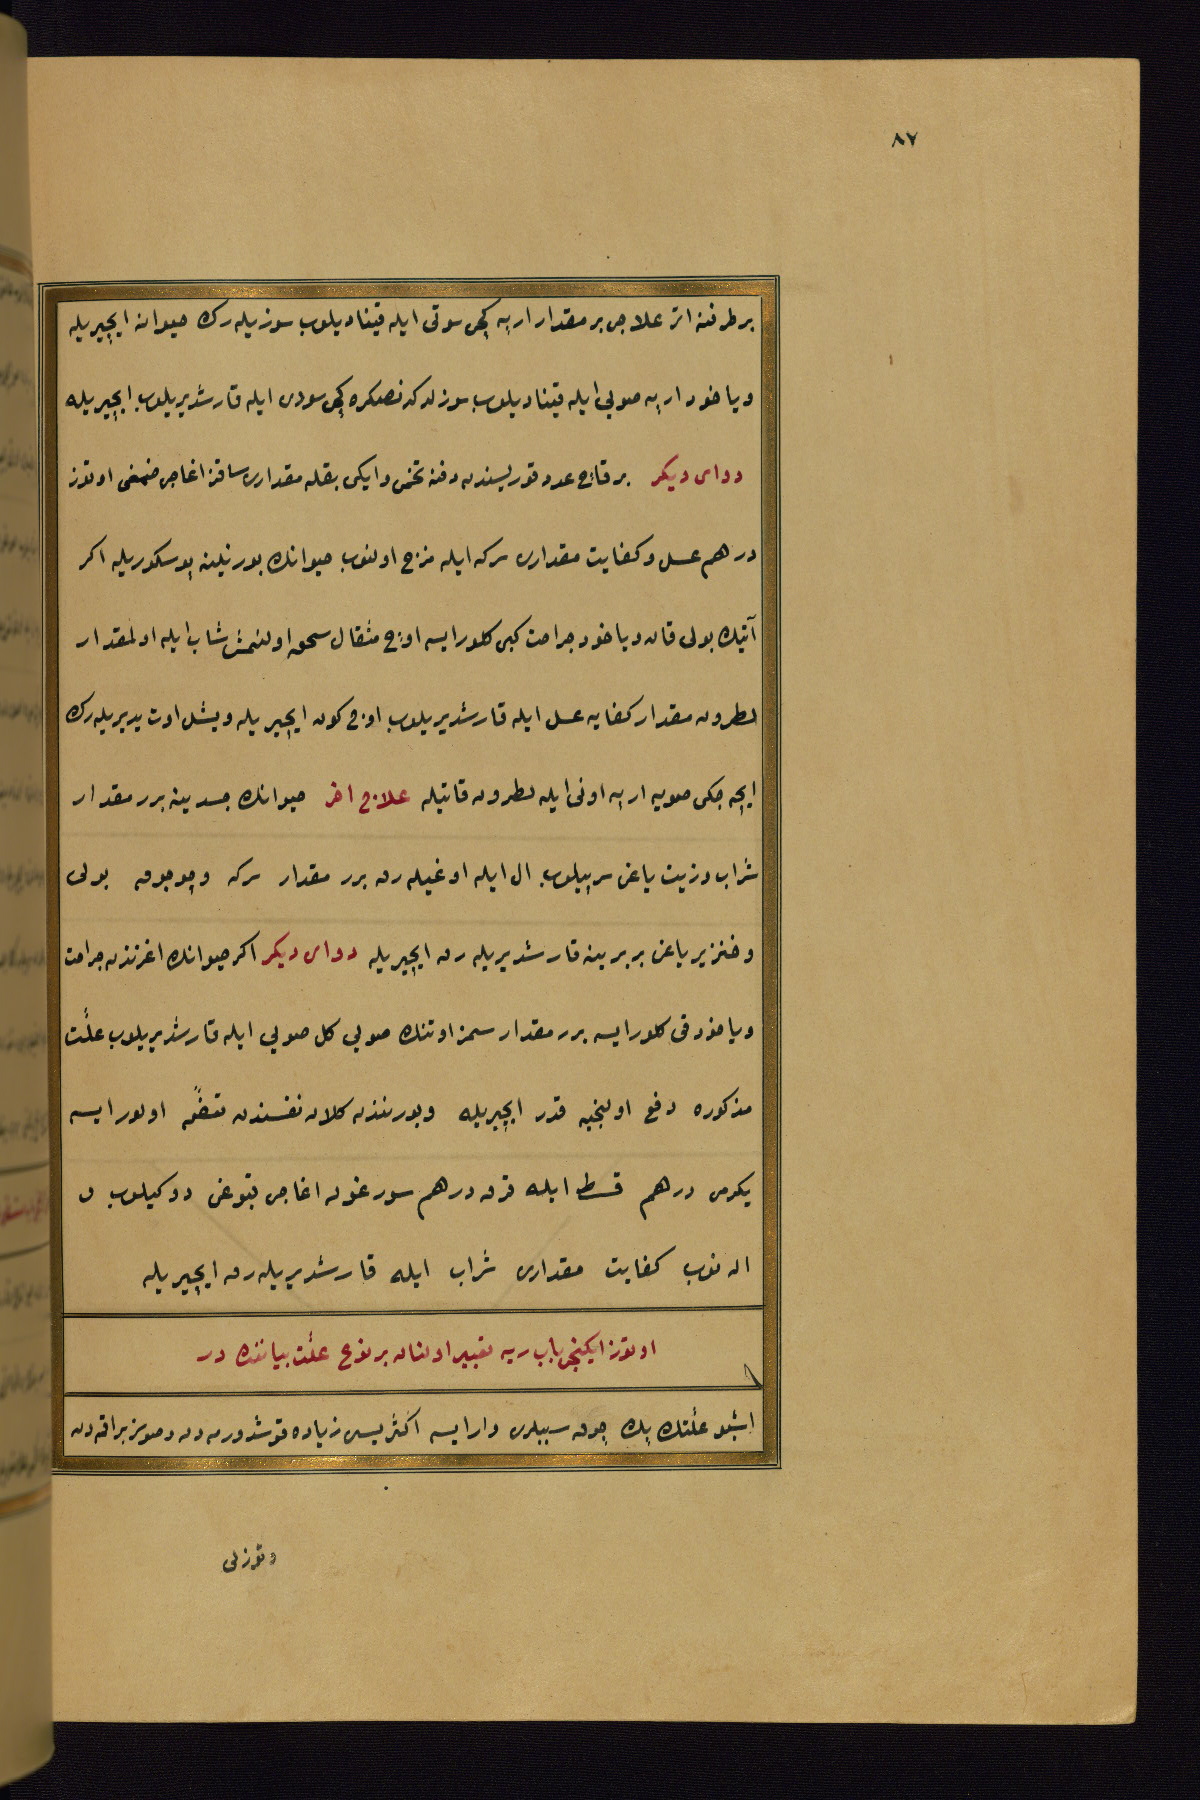 ٨٧
بر طرفنه اتر علاجی بر مقدار ارپه کچی سوتی ایله قینادیلوب سوزیله رك حیوانه ایچیریله
ویاخود ارپه صویی ایله قینادیلوب سوزلدکدنصکره کچی سودی ایله قارشدیریلوب ایچیریله
دوای دیکر برقاچ عدد قوریسندن دفنه تخمی و ایکی بقله مقداری ساقز اغاجی ضمغی اوتوز
درهم عسل و کفایت مقداری سرکه ایله مزج اولنوب حیوانك بورنیلنه پوسکوریله اکر
آتیك بولی قان ویاخود جراحت کبی کلور ایسه اوچ مثقال سحق اولنمش شاب ایله اولمقدار
نطرون مقدار کفایه عسل ایله قارشدیریلوب اوچ کون ایچیریله ویشل اوت یدیریله رك
ایچه جکی صویه ارپه اونی ایله نطرون قاتیله علاج اخر حیوانك جسدینه برر مقدار
شراب وزیت یاغی سرپیلوب ال ایله اوغیله رق برر مقدار سرکه وچوجوق بولی
وخنزیر یاغی بربرینه قارشدیریله رق ایچیریله دوای دیکر اکر حیوانك اغزندن جراحت
ویاخود قی کلور ایسه برر مقدار سمز اوتنك صویی کل صویی ایله قارشدیریلوب علّت
مذکوره دفع اولنجیه قدر ایچیریله وبورنندن کلان نفسندن اولور ایسه
یکرمی درهم قسط ایله قرق درهم سورغون اغاجی قبوغی دوکیلوب و
الـه نوب کفایت مقداری شراب ایله قارشدیریله رق ایچیریله
اوتوز ایکنجی باب ریه تعبیر اولنان بر نوع علّت بیاننده در
اشبو علّتك پك چوق سببلری وار ایسه اکثریسی زیاده قوشدورمه دن وصوسز براقه دن
وتوزلی